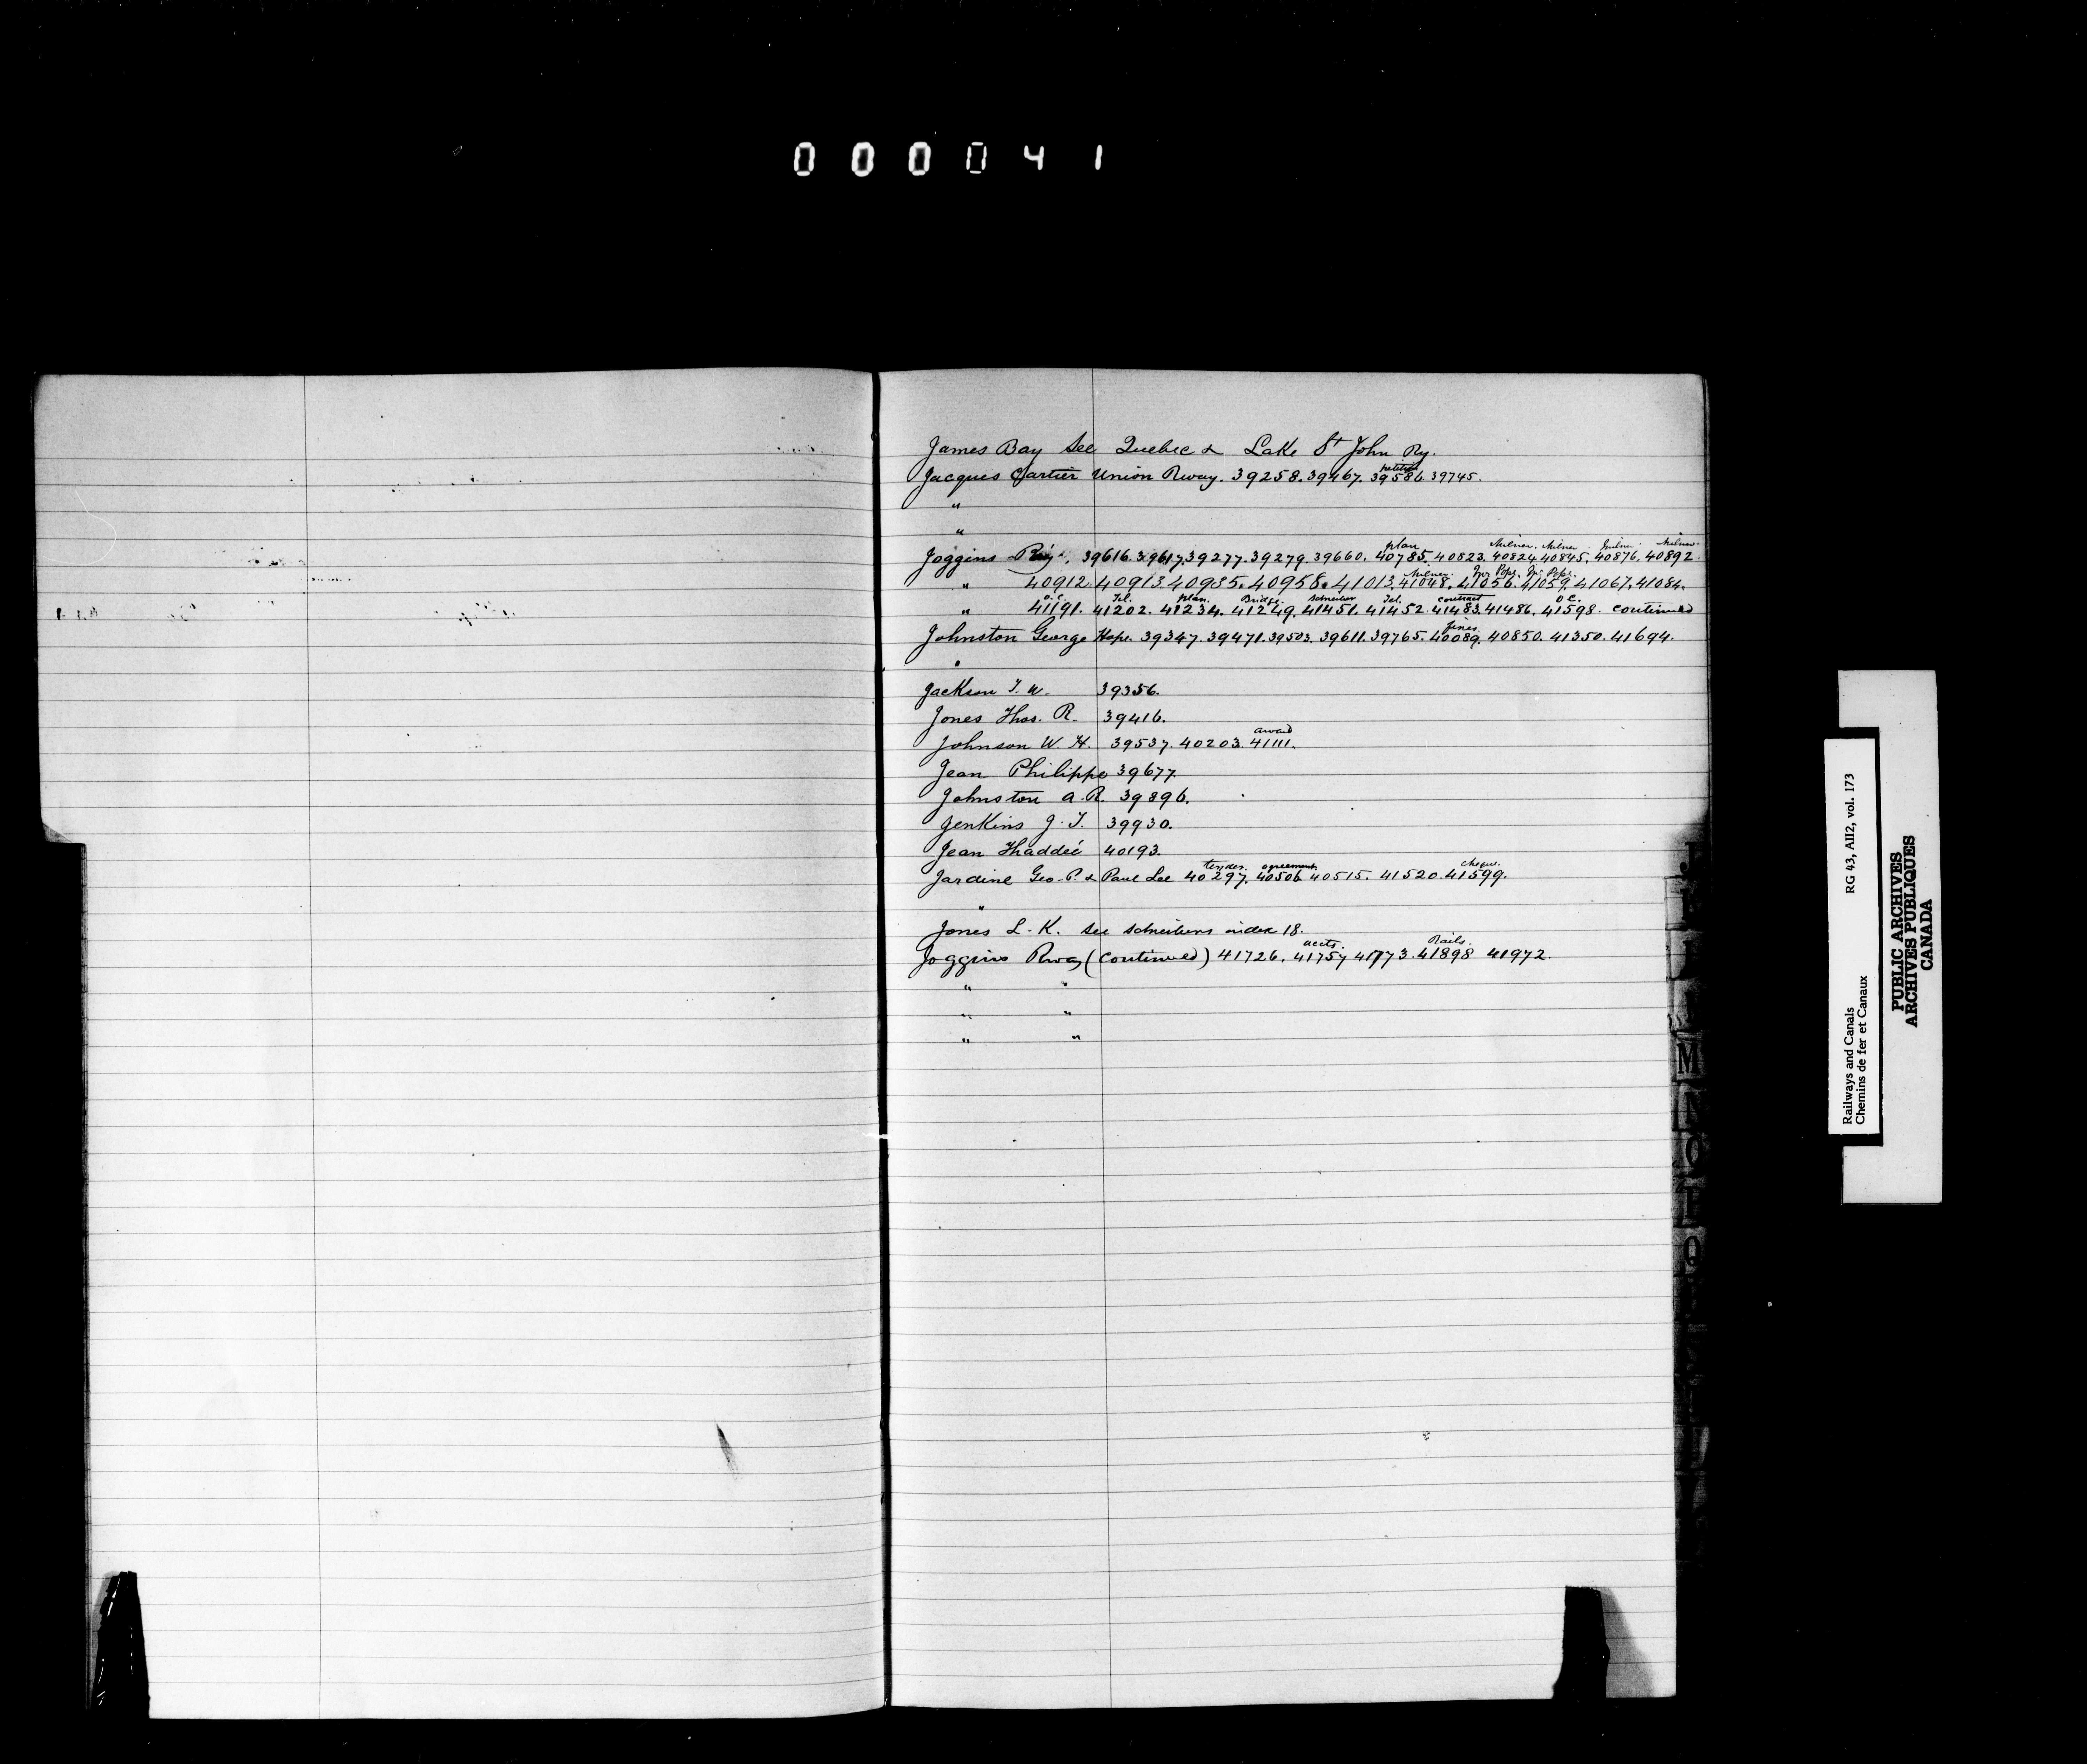 000041
James Bay See Quebec & Lake St John Ry.
petition
Jacques Cartier Union Rway. 39258. 39467. 39586. 39745.
"
"
plan Milner. Milner Milner Milner
Joggins Ry. 39616. 39617. 39277. 39279. 39660. 40785. 40823. 40824 40845. 40876. 40892
Milner. Mr Pope. Mr Pope.
" 40912. 40913. 40935. 40958. 41013. 41048. 41056. 41059. 41067. 41084.
O.C. Tel. plan. Bridge. Schreiber Tel. contract O.C.
" 41191. 41202. 41234. 41249. 41451. 41452. 41483. 41486. 41598. continued
fines
Johnston George Hope. 39347. 39471. 39503. 39611. 39765. 40089. 40850. 41350. 41694.
"
Jackson T. W. 39356.
Jones Thos. R. 39416.
award
Johnson W. H. 39537. 40203. 41111.
Jean Philippe 39677.
Johnston A. R. 39896.
Jenkins J. T. 39930.
Jean Thaddeé 40193.
tender. agreement. cheque.
Jardine Geo. P. & Paul Lee 40297. 40506 40515. 41520. 41599.
"
Jones L. K. see Schreibers index 18.
accts. Rails.
Joggins Rway (continued) 41726. 41757 41773. 41898 41972.
" "
" "
" "
M
N
O
Q
Railways and Canals RG 43, AII2, vol. 173
Chemins de fer et Canaux
PUBLIC ARCHIVES
ARCHIVES PUBLIQUES
CANADA